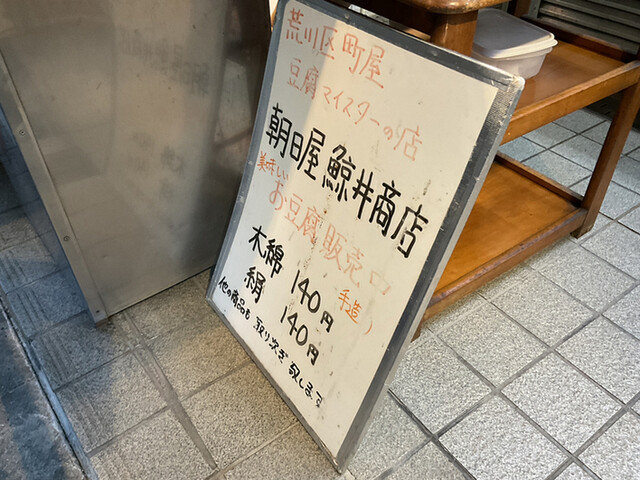 荒川区町屋
豆腐マイスターの店
朝日屋鯨井商店
美味しい
お豆腐販売中
手造り
木綿 140円
絹 140円
他の商品も取り次ぎ致します